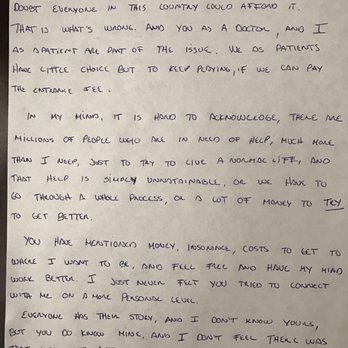 DOUBT EVERYONE IN THIS COUNTRY COULD AFFORD IT.
THAT IS WHAT'S WRONG. AND YOU AS A DOCTOR, AND I
AS A PATIENT ARE PART OF THE ISSUE. WE AS PATIENTS
HAVE LITTLE CHOICE BUT TO KEEP PLAYING, IF WE CAN PAY
THE ENTRANCE FEE.
IN MY MIND, IT IS HARD TO ACKNOWLEDGE, THERE ARE
MILLIONS OF PEOPLE WHO ARE IN NEED OF HELP, MUCH MORE
THAN I NEED, JUST TO TRY TO LIVE A NORMAL LIFE, AND
THAT HELP IS SIMPLY UNATTAINABLE, OR WE HAVE TO
GO THROUGH A WHOLE PROCESS, OR A LOT OF MONEY TO TRY
TO GET BETTER.
YOU HAVE MENTIONED MONEY, INSURANCE, COSTS TO GET TO
WHERE I WANT TO BE, AND FEEL FREE AND HAVE MY MIND
WORK BETTER. I JUST NEVER FELT YOU TRIED TO CONNECT
WITH ME ON A MORE PERSONAL LEVEL.
EVERYONE HAS THEIR STORY, AND I DON'T KNOW YOURS,
BUT YOU DO KNOW MINE, AND I DON'T FEEL THERE WAS